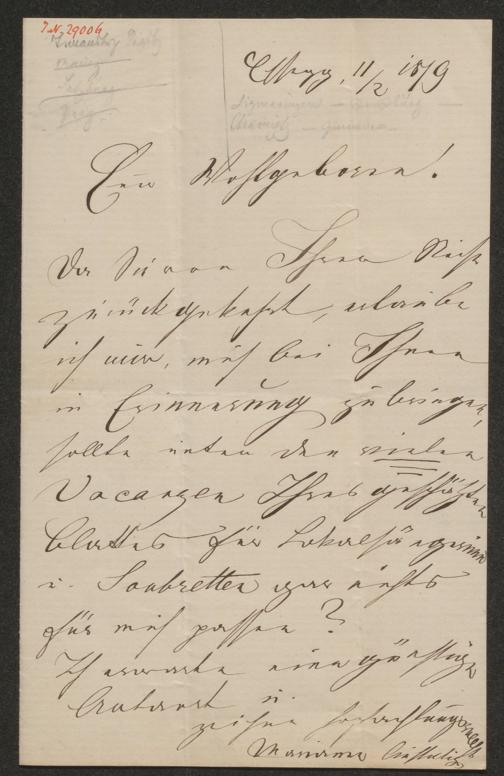 J.N. 29006
11/2 1879
Euer Wohlgeboren!
Da Sie von Ihrer Reise
zurückgekehrt, erlaube
ich mir, mich bei Ihnen
in Erinnerung zu bringen,
sollte unter den vielen
Vacanzen Ihres geschätzten
Blattes für Lokalsängerinnen
u. Soubretten gar nichts
für mich passen?
Ich erwarte eine günstige
Antwort u.
zeichne hochachtungsvollst
Marianne